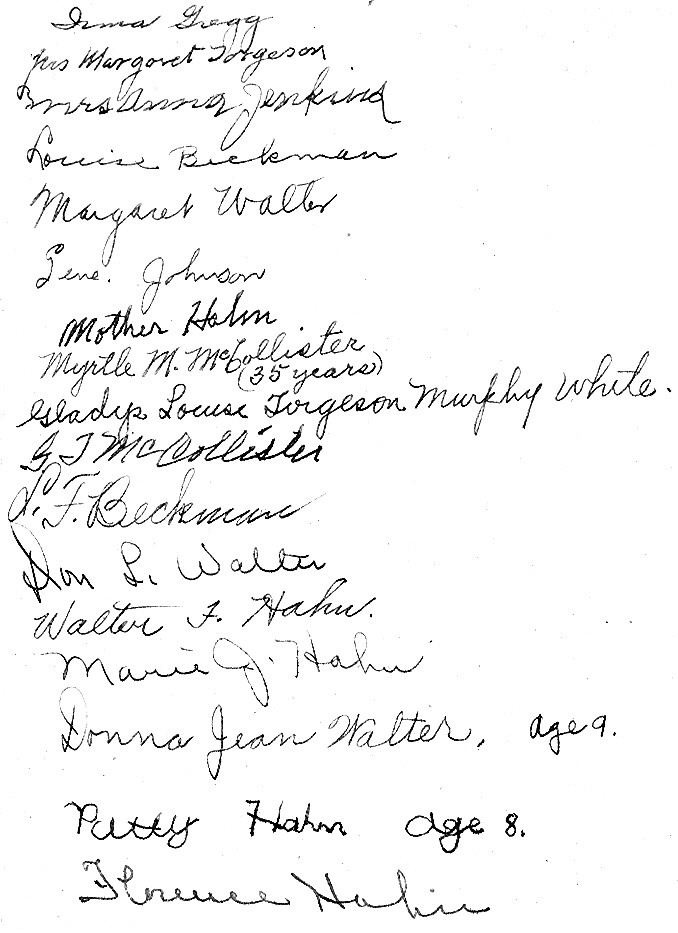 Irma Gregg
Mrs Margaret Torgeson
Mrs Anna Jenkins
Louise Beckman
Margaret Walter
Gene. Johnson
Mother Hahn
Myrtle M. McCollister
(35 years)
Gladys Louise Torgeson Murphy White.
G T McCollister
L. F. Beckman
Don L. Walter
Walter F. Hahn.
Marie J. Hahn
Donna Jean Walter, age 9.
Patty Hahn age 8.
Florence Hahn